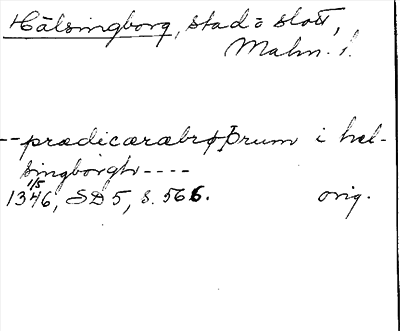 Hälsingborg, stad o slott,
Malm. l.
--prædicarabrøþrum i hæl-
singborgh----
1/5
1346, SD 5, s. 566. orig.